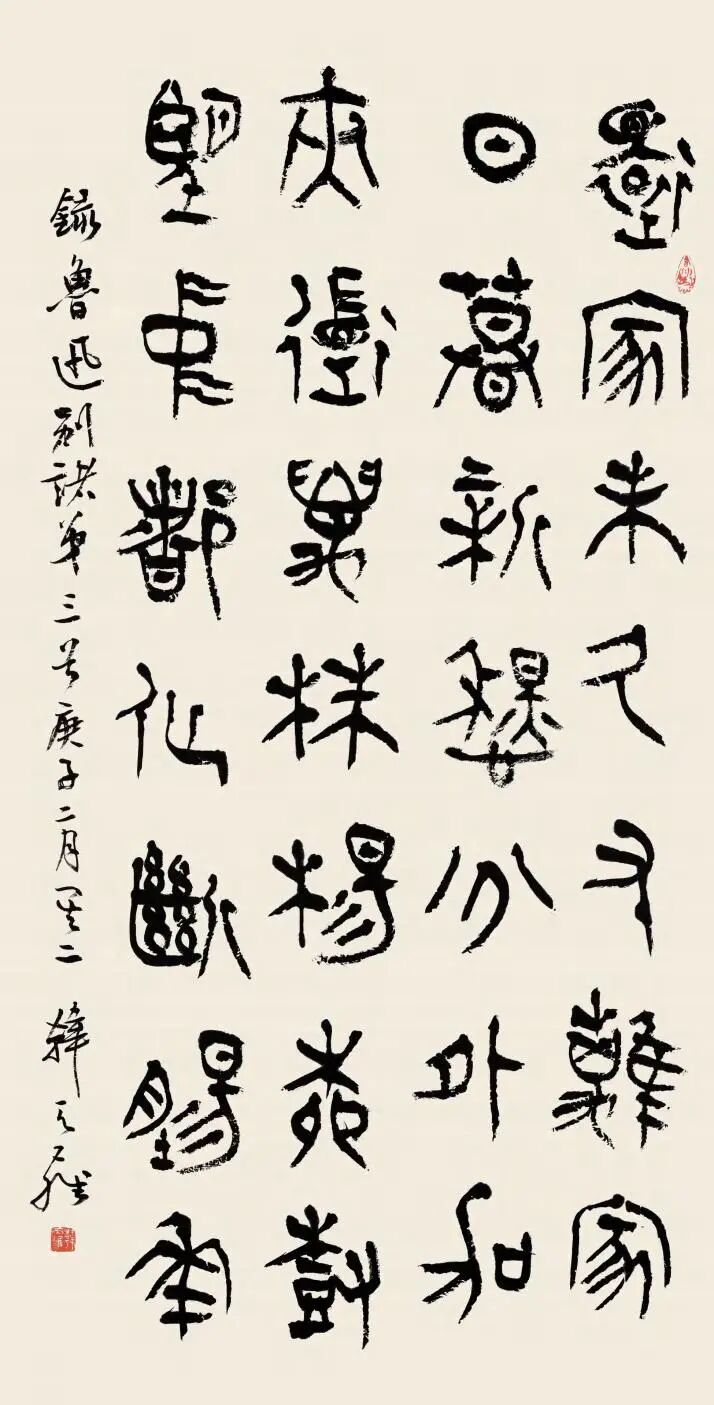 還家未久又離家
日暮新愁分外加
夾道萬株楊柳樹
望中都化斷腸花
錄魯迅別諸弟三首庚子二月其二 韓天雍